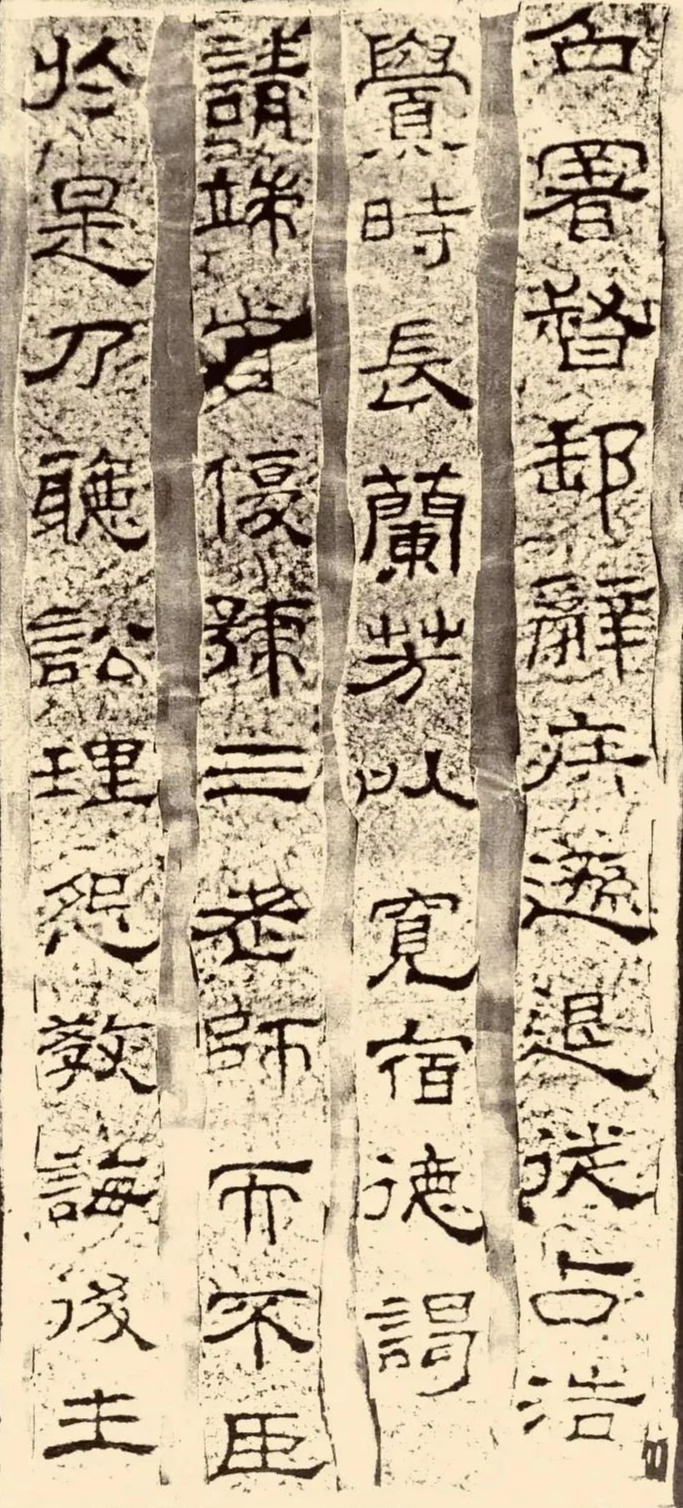 召署督郵辭疾遜退徙占浩
亹時長蘭芳以寬宿德謁
請端首優號三老師而不臣
於是乃聽訟理怨教誨後生